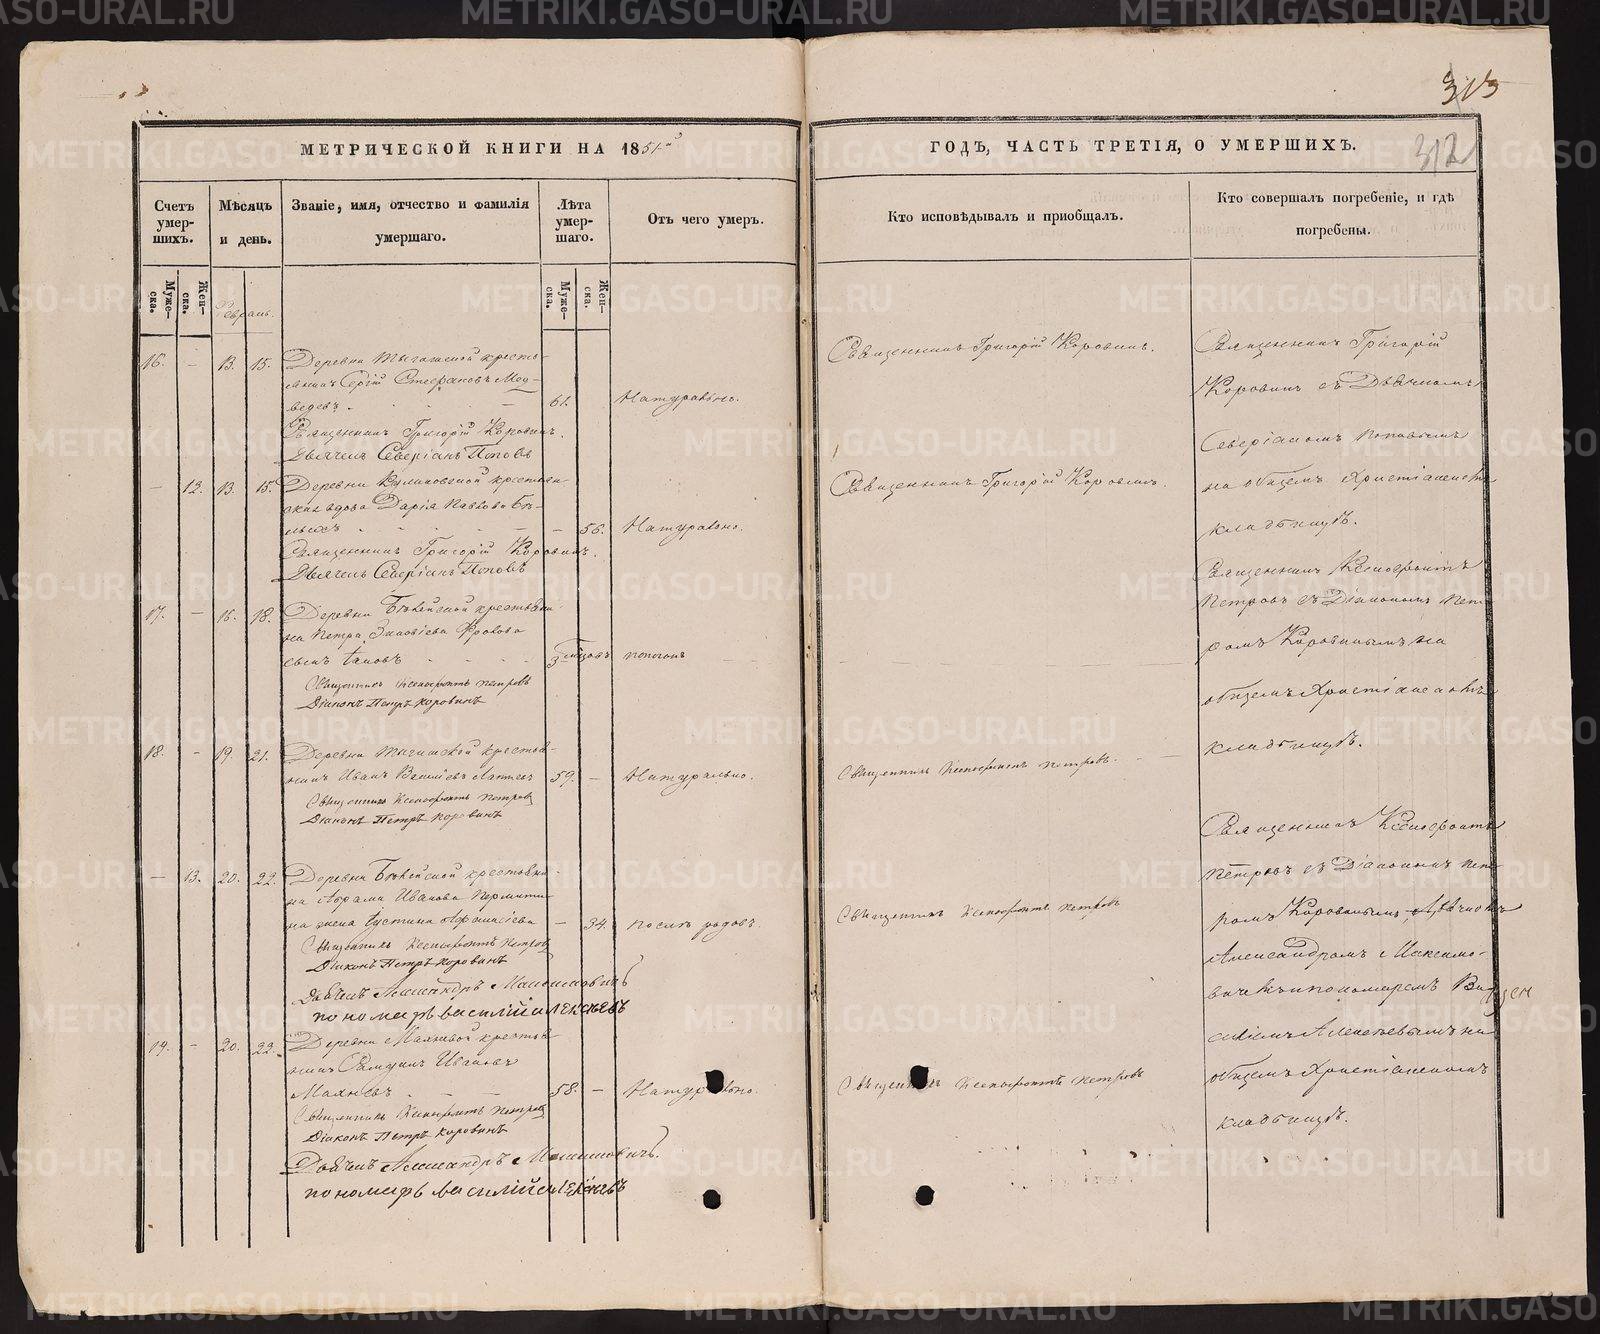 315
312
МЕТРИЧЕСКОЙ КНИГИ НА 1851й
ГОДЪ, ЧАСТЬ ТРЕТІЯ, О УМЕРШИХЪ.
Счетъ умер-шихъ.
Мѣсяцъ и день.
Званіе, имя, отчество и фамилія
умершаго.
Лѣта умер-шаго.
Отъ чего умеръ.
Кто исповѣдывалъ и пріобщалъ.
Кто совершалъ погребеніе, и гдѣ
погребены.
Муже-ска.
Жен-ска.
Муже-ска.
Жен-ска.
Февраль.
16. – 13. 15. Деревни крестья-
нинъ Сергій Стефановъ Мед-
ведевъ 61. Натурально.
Священникъ Григорій Коровинъ.
Дьячекъ Северіанъ Поповъ
Священникъ Григорій Коровинъ.
– 12. 13. 15. Деревни крестьян-
ская вдова Дарія Павлова Бѣ-
лыхъ – 56. Натурально.
Священникъ Григорій Коровинъ.
Дьячекъ Северіанъ Поповъ
Священникъ Григорій Коровинъ.
Священникъ Григорій
Коровинъ съ Дьячкомъ
Северіаномъ Поповымъ
на общемъ Христіанскомъ
кладбищѣ.
17. – 16. 18. Деревни крестьяни-
на Петра Зиновіева Фролова
сынъ Іаковъ
Священникъ Ксенофонтъ Петровъ
Діаконъ Петръ Коровинъ
18. – 19. 21. Деревни крестья-
нинъ Иванъ 59. – Натурально.
Священникъ Ксенофонтъ Петровъ
Діаконъ Петръ Коровинъ
Священникъ Ксенофонтъ Петровъ.
Священникъ Ксенофонтъ
Петровъ съ Діакономъ Пет-
ромъ Коровинымъ на
общемъ Христіанскомъ
кладбищѣ.
– 13. 20. 22. Деревни крестьяни-
на Абрама Иванова
на жена Іустина Афанасіева – 34. послѣ родовъ.
Священникъ Ксенофонтъ Петровъ
Діаконъ Петръ Коровинъ
Дьячекъ Александръ Максимовичъ
пономарь Василій Алексѣевъ
Священникъ Ксенофонтъ Петровъ
19. – 20. 22. Деревни крестья-
нинъ Иванов
58. – Натурально.
Священникъ Ксенофонтъ Петровъ
Діаконъ Петръ Коровинъ
Дьячекъ Александръ Максимовичъ.
пономарь Василій Алексѣевъ
Священникъ Ксенофонтъ Петровъ
Священникъ Ксенофонтъ
Петровъ съ Діакономъ Пет-
ромъ Коровинымъ, Дьячкомъ
Александромъ Максимо-
вичемъ и пономаремъ Ва-
силіемъ Алексѣевымъ на
общемъ Христіанскомъ
кладбищѣ.
METRIKI.GASO-URAL.RU